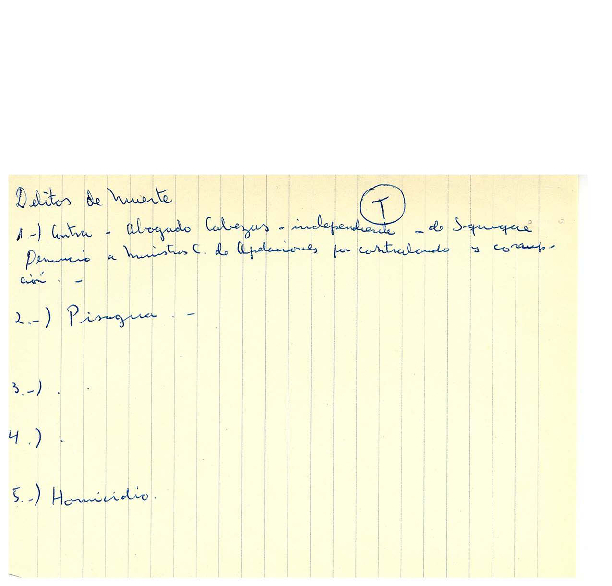 Delitos de muerte
T
1-) Contra - abogado Cabezas - independiente - de Iquique
Denuncio a Ministros C. de Apelaciones por contrabando y corrup-
ción. -
2.-) Pisagua. -
3.-) .
4.) .
5.-) Homicidio.